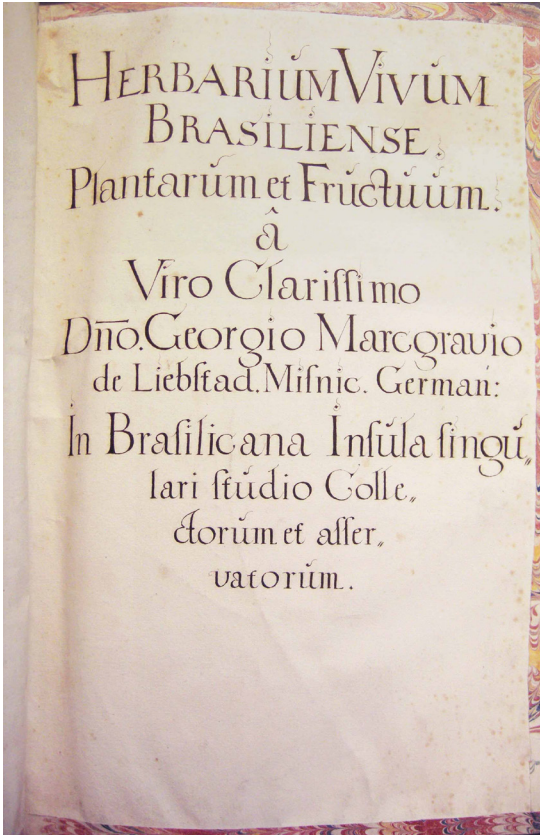 HERBARIŬM VIVŬM
BRASILIENSE.
Plantarŭm et Frŭctŭum.
â
Viro Clariſſimo
Dn̄o. Georgio Marcgrauio
de Liebſtad. Miſnic. German:
In Braſilicana Inſŭla singŭ„
lari ſtŭdio Colle„
ctorŭm et aſſer„
vatorŭm.